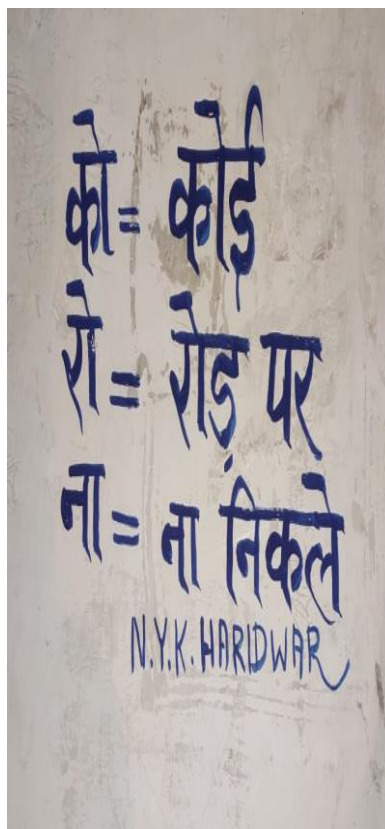 को = कोई
रो = रोड़ पर
ना = ना निकले
N.Y.K. HARIDWAR